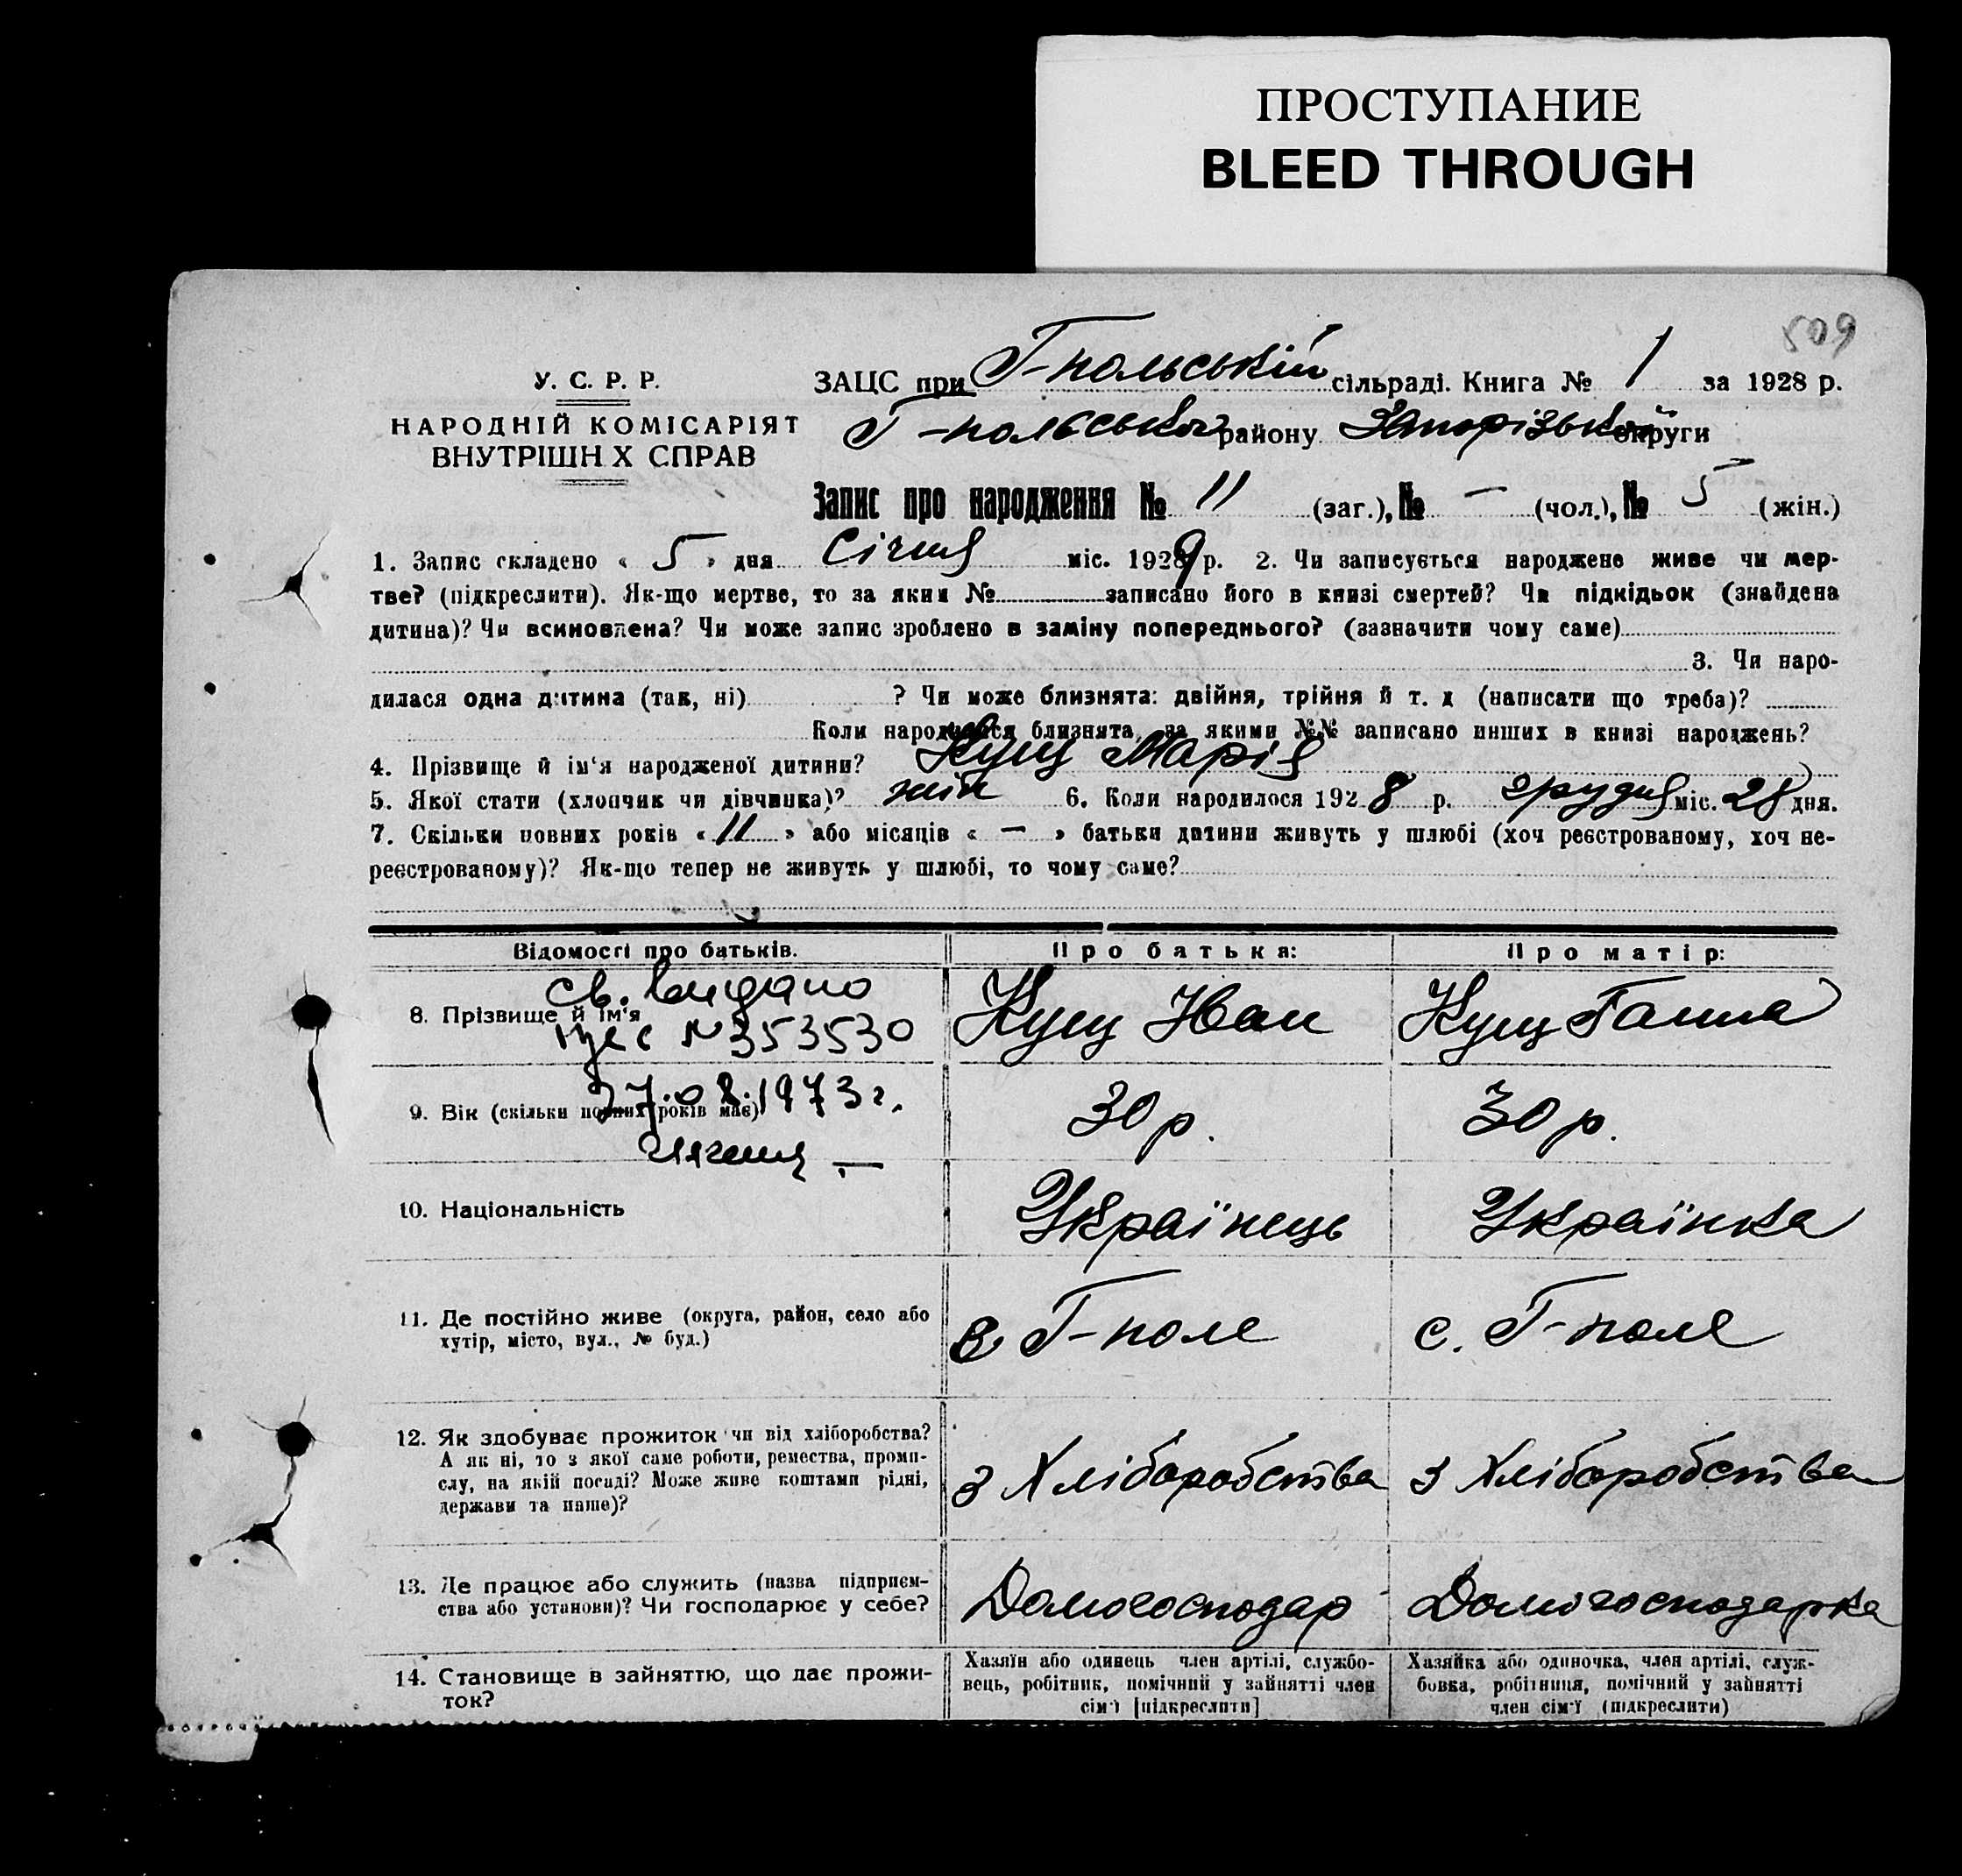 ПРОСТУПАНИЕ
BLEED THROUGH
509
У. С. Р. Р.
НАРОДНІЙ КОМІСАРІЯТ
ВНУТРІШН Х СПРАВ
ЗАЦС при Г-польській сільраді. Книга № 1 за 1928 р.
Г-польського району Запорізької округи
Запис про народження № 11 (заг.), № — (чол.), № 5 (жін.)
1. Запис складено « 5 » дня Січня міс. 1929 р. 2. Чи записується народжене живе чи мер-
тве? (підкреслити). Як-що мертве, то за яким № записано його в книзі смертей? Чи підкідьок (знайдена
дитина)? Чи всиновлена? Чи може запис зроблено в заміну попереднього? (зазначити чому саме)
3. Чи наро-
дилася одна дитина (так, ні) ? Чи може близнята: двійня, трійня й т. д (написати що треба)?
Коли народилися близнята, за якими №№ записано инших в книзі народжень?
4. Прізвище й ім'я народженої дитини? Кущ Марія
5. Якої стати (хлопчик чи дівчинка)? жін 6. Коли народилося 1928 р. грудня міс. 28 дня.
7. Скільки повних років « 11 » або місяців « — » батьки дитини живуть у шлюбі (хоч реєстрованому, хоч не-
реєстрованому)? Як-що тепер не живуть у шлюбі, то чому саме?
Відомості про батьків. Про батька: Про матір:
св. видано
8. Прізвище й ім'я Кущ Иван Кущ Ганна
N 353530
27.08.1973 г.
9. Вік (скільки повних років має) 30 р. 30 р.
10. Національність Українець Українка
11. Де постійно живе (округа, район, село або
хутір, місто, вул., № буд.) с Г-поле с. Г-поле
12. Як здобуває прожиток чи від хліборобства?
А як ні, то з якої саме роботи, ремества, проми-
слу, на якій посаді? Може живе коштами рідні,
держави та инше)? з Хліборобства з Хліборобства
13. Де працює або служить (назва підприєм-
ства або установи)? Чи господарює у себе? Домогосподар Домогосподарка
14. Становище в зайняттю, що дає прожи-
ток?
Хазяїн або одинець член артілі, службо-
вець, робітник, помічний у зайнятті член
сім'ї [підкреслити]
Хазяйка або одиночка, член артілі, служ-
бовка, робітниця, помічний у зайнятті
член сім'ї (підкреслити)